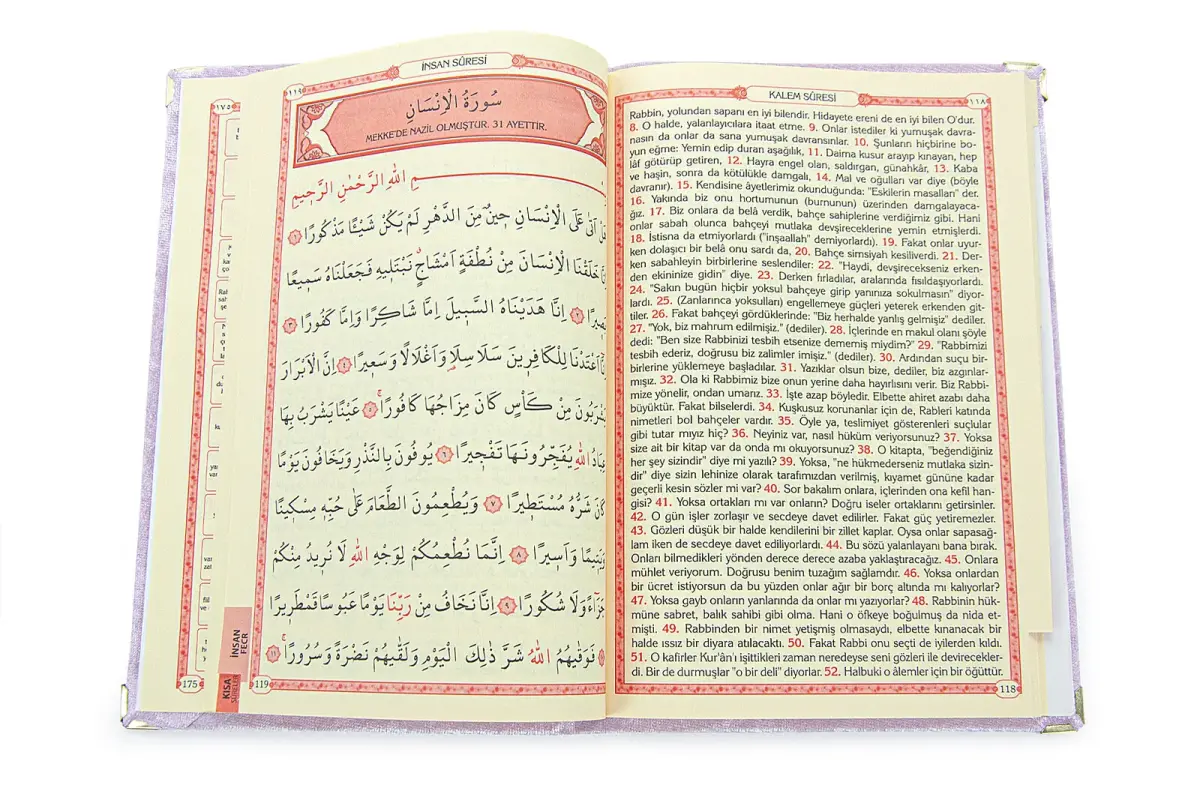 KALEM SÛRESİ
١١٨
Rabbin, yolundan sapanı en iyi bilendir. Hidayete ereni de en iyi bilen O'dur.
8. O halde, yalanlayıcılara itaat etme. 9. Onlar istediler ki yumuşak davra-
nasın da onlar da sana yumuşak davransınlar. 10. Şunların hiçbirine bo-
yun eğme: Yemin edip duran aşağılık, 11. Daima kusur arayıp kınayan, hep
lâf götürüp getiren, 12. Hayra engel olan, saldırgan, günahkâr, 13. Kaba
ve haşin, sonra da kötülükle damgalı, 14. Mal ve oğulları var diye (böyle
davranır). 15. Kendisine âyetlerimiz okunduğunda: "Eskilerin masalları" der.
16. Yakında biz onu hortumunun (burnunun) üzerinden damgalayaca-
ğız. 17. Biz onlara da belâ verdik, bahçe sahiplerine verdiğimiz gibi. Hani
onlar sabah olunca bahçeyi mutlaka devşireceklerine yemin etmişlerdi.
18. İstisna da etmiyorlardı ("inşaallah" demiyorlardı). 19. Fakat onlar uyur-
ken dolaşıcı bir belâ onu sardı da, 20. Bahçe simsiyah kesiliverdi. 21. Der-
ken sabahleyin birbirlerine seslendiler: 22. "Haydi, devşirecekseniz erken-
den ekininize gidin" diye. 23. Derken fırladılar, aralarında fısıldaşıyorlardı.
24. "Sakın bugün hiçbir yoksul bahçeye girip yanınıza sokulmasın" diyor-
lardı. 25. (Zanlarınca yoksulları) engellemeye güçleri yeterek erkenden git-
tiler. 26. Fakat bahçeyi gördüklerinde: "Biz herhalde yanlış gelmişiz" dediler.
27. "Yok, biz mahrum edilmişiz." (dediler). 28. İçlerinde en makul olanı şöyle
dedi: "Ben size Rabbinizi tesbih etsenize dememiş miydim?" 29. "Rabbimizi
tesbih ederiz, doğrusu biz zalimler imişiz." (dediler). 30. Ardından suçu bir-
birlerine yüklemeye başladılar. 31. Yazıklar olsun bize, dediler, biz azgınlar-
mışız. 32. Ola ki Rabbimiz bize onun yerine daha hayırlısını verir. Biz Rabbi-
mize yönelir, ondan umarız. 33. İşte azap böyledir. Elbette ahiret azabı daha
büyüktür. Fakat bilselerdi. 34. Kuşkusuz korunanlar için de, Rableri katında
nimetleri bol bahçeler vardır. 35. Öyle ya, teslimiyet gösterenleri suçlular
gibi tutar mıyız hiç? 36. Neyiniz var, nasıl hüküm veriyorsunuz? 37. Yoksa
size ait bir kitap var da onda mı okuyorsunuz? 38. O kitapta, "beğendiğiniz
her şey sizindir" diye mi yazılı? 39. Yoksa, "ne hükmederseniz mutlaka sizin-
dir" diye sizin lehinize olarak tarafımızdan verilmiş, kıyamet gününe kadar
geçerli kesin sözler mi var? 40. Sor bakalım onlara, içlerinden ona kefil han-
gisi? 41. Yoksa ortakları mı var onların? Doğru iseler ortaklarını getirsinler.
42. O gün işler zorlaşır ve secdeye davet edilirler. Fakat güç yetiremezler.
43. Gözleri düşük bir halde kendilerini bir zillet kaplar. Oysa onlar sapasağ-
lam iken de secdeye davet ediliyorlardı. 44. Bu sözü yalanlayanı bana bırak.
Onları bilmedikleri yönden derece derece azaba yaklaştıracağız. 45. Onlara
mühlet veriyorum. Doğrusu benim tuzağım sağlamdır. 46. Yoksa onlardan
bir ücret istiyorsun da bu yüzden onlar ağır bir borç altında mı kalıyorlar?
47. Yoksa gayb onların yanlarında da onlar mı yazıyorlar? 48. Rabbinin hük-
müne sabret, balık sahibi gibi olma. Hani o öfkeye boğulmuş da nida et-
mişti. 49. Rabbinden bir nimet yetişmiş olmasaydı, elbette kınanacak bir
halde ıssız bir diyara atılacaktı. 50. Fakat Rabbi onu seçti de iyilerden kıldı.
51. O kafirler Kur'ân'ı işittikleri zaman neredeyse seni gözleri ile devirecekler-
di. Bir de durmuşlar "o bir deli" diyorlar. 52. Halbuki o âlemler için bir öğüttür.
118
İNSAN SÛRESİ
١١٩
سُورَةُ الْاِنْسَانِ
MEKKE'DE NAZİL OLMUŞTUR. 31 AYETTİR.
مِ اللّٰهِ الرَّحْمٰنِ الرَّحٖيمِ
اَتٰى عَلَى الْاِنْسَانِ حٖينٌ مِنَ الدَّهْرِ لَمْ يَكُنْ شَيْـًٔا مَذْكُورًا ﴿١﴾
خَلَقْنَا الْاِنْسَانَ مِنْ نُطْفَةٍ اَمْشَاجٍ نَبْتَلٖيهِ فَجَعَلْنَاهُ سَمٖيعًا
﴿٢﴾ اِنَّا هَدَيْنَاهُ السَّبٖيلَ اِمَّا شَاكِرًا وَاِمَّا كَفُورًا ﴿٣﴾
اَعْتَدْنَا لِلْكَافِرٖينَ سَلَاسِلَا۬ وَاَغْلَالًا وَسَعٖيرًا ﴿٤﴾ اِنَّ الْاَبْرَارَ
يَشْرَبُونَ مِنْ كَأْسٍ كَانَ مِزَاجُهَا كَافُورًا ﴿٥﴾ عَيْنًا يَشْرَبُ بِهَا
اللّٰهِ يُفَجِّرُونَهَا تَفْجٖيرًا ﴿٦﴾ يُوفُونَ بِالنَّذْرِ وَيَخَافُونَ يَوْمًا
كَانَ شَرُّهُ مُسْتَطٖيرًا ﴿٧﴾ وَيُطْعِمُونَ الطَّعَامَ عَلٰى حُبِّهٖ مِسْكٖينًا
وَيَتٖيمًا وَاَسٖيرًا ﴿٨﴾ اِنَّمَا نُطْعِمُكُمْ لِوَجْهِ اللّٰهِ لَا نُرٖيدُ مِنْكُمْ
جَزَٓاءً وَلَا شُكُورًا ﴿٩﴾ اِنَّا نَخَافُ مِنْ رَبِّنَا يَوْمًا عَبُوسًا قَمْطَرٖيرًا
فَوَقٰيهُمُ اللّٰهُ شَرَّ ذٰلِكَ الْيَوْمِ وَلَقّٰيهُمْ نَضْرَةً وَسُرُورًا ﴿١١﴾
119
İNSAN
FECR
KISA
SURELER
١٧٥
175